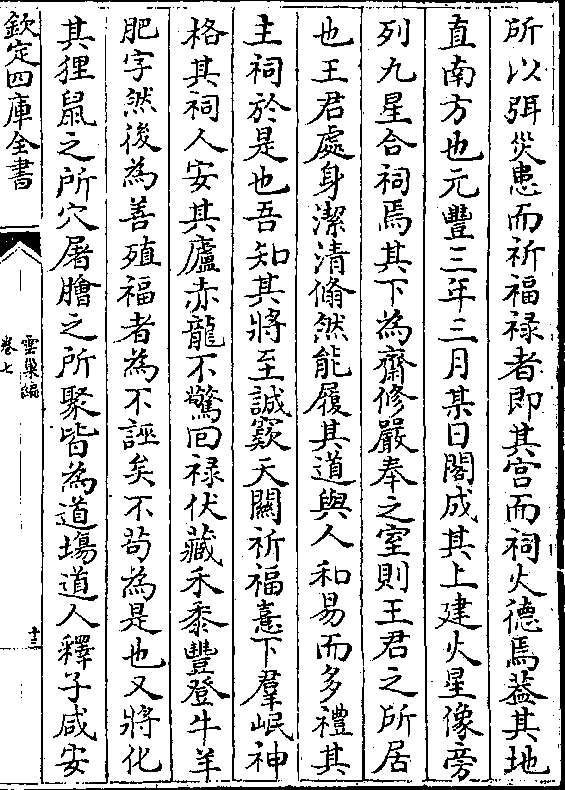 所以弭災患而祈福禄者即其宫而祠火德焉葢其地
直南方也元豐三年三月某日閣成其上建火星像旁
列九星合祠焉其下為齋修嚴奉之室則王君之所居
也王君處身潔清翛然能履其道與人和易而多禮其
主祠於是也吾知其將至誠窾天闗祈福憙下羣岷神
格其祠人安其廬赤龍不驚囘禄伏藏禾黍豐登牛羊
肥字然後為善殖福者為不誣矣不茍為是也又將化
其狸鼠之所穴屠膾之所聚皆為道塲道人釋子咸安
欽定四庫全書
雲巢編
卷七
十三